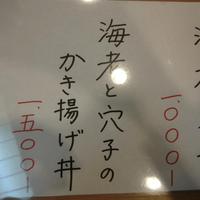 一、〇〇〇ー
海老と穴子の
かき揚げ丼
一、五〇〇ー